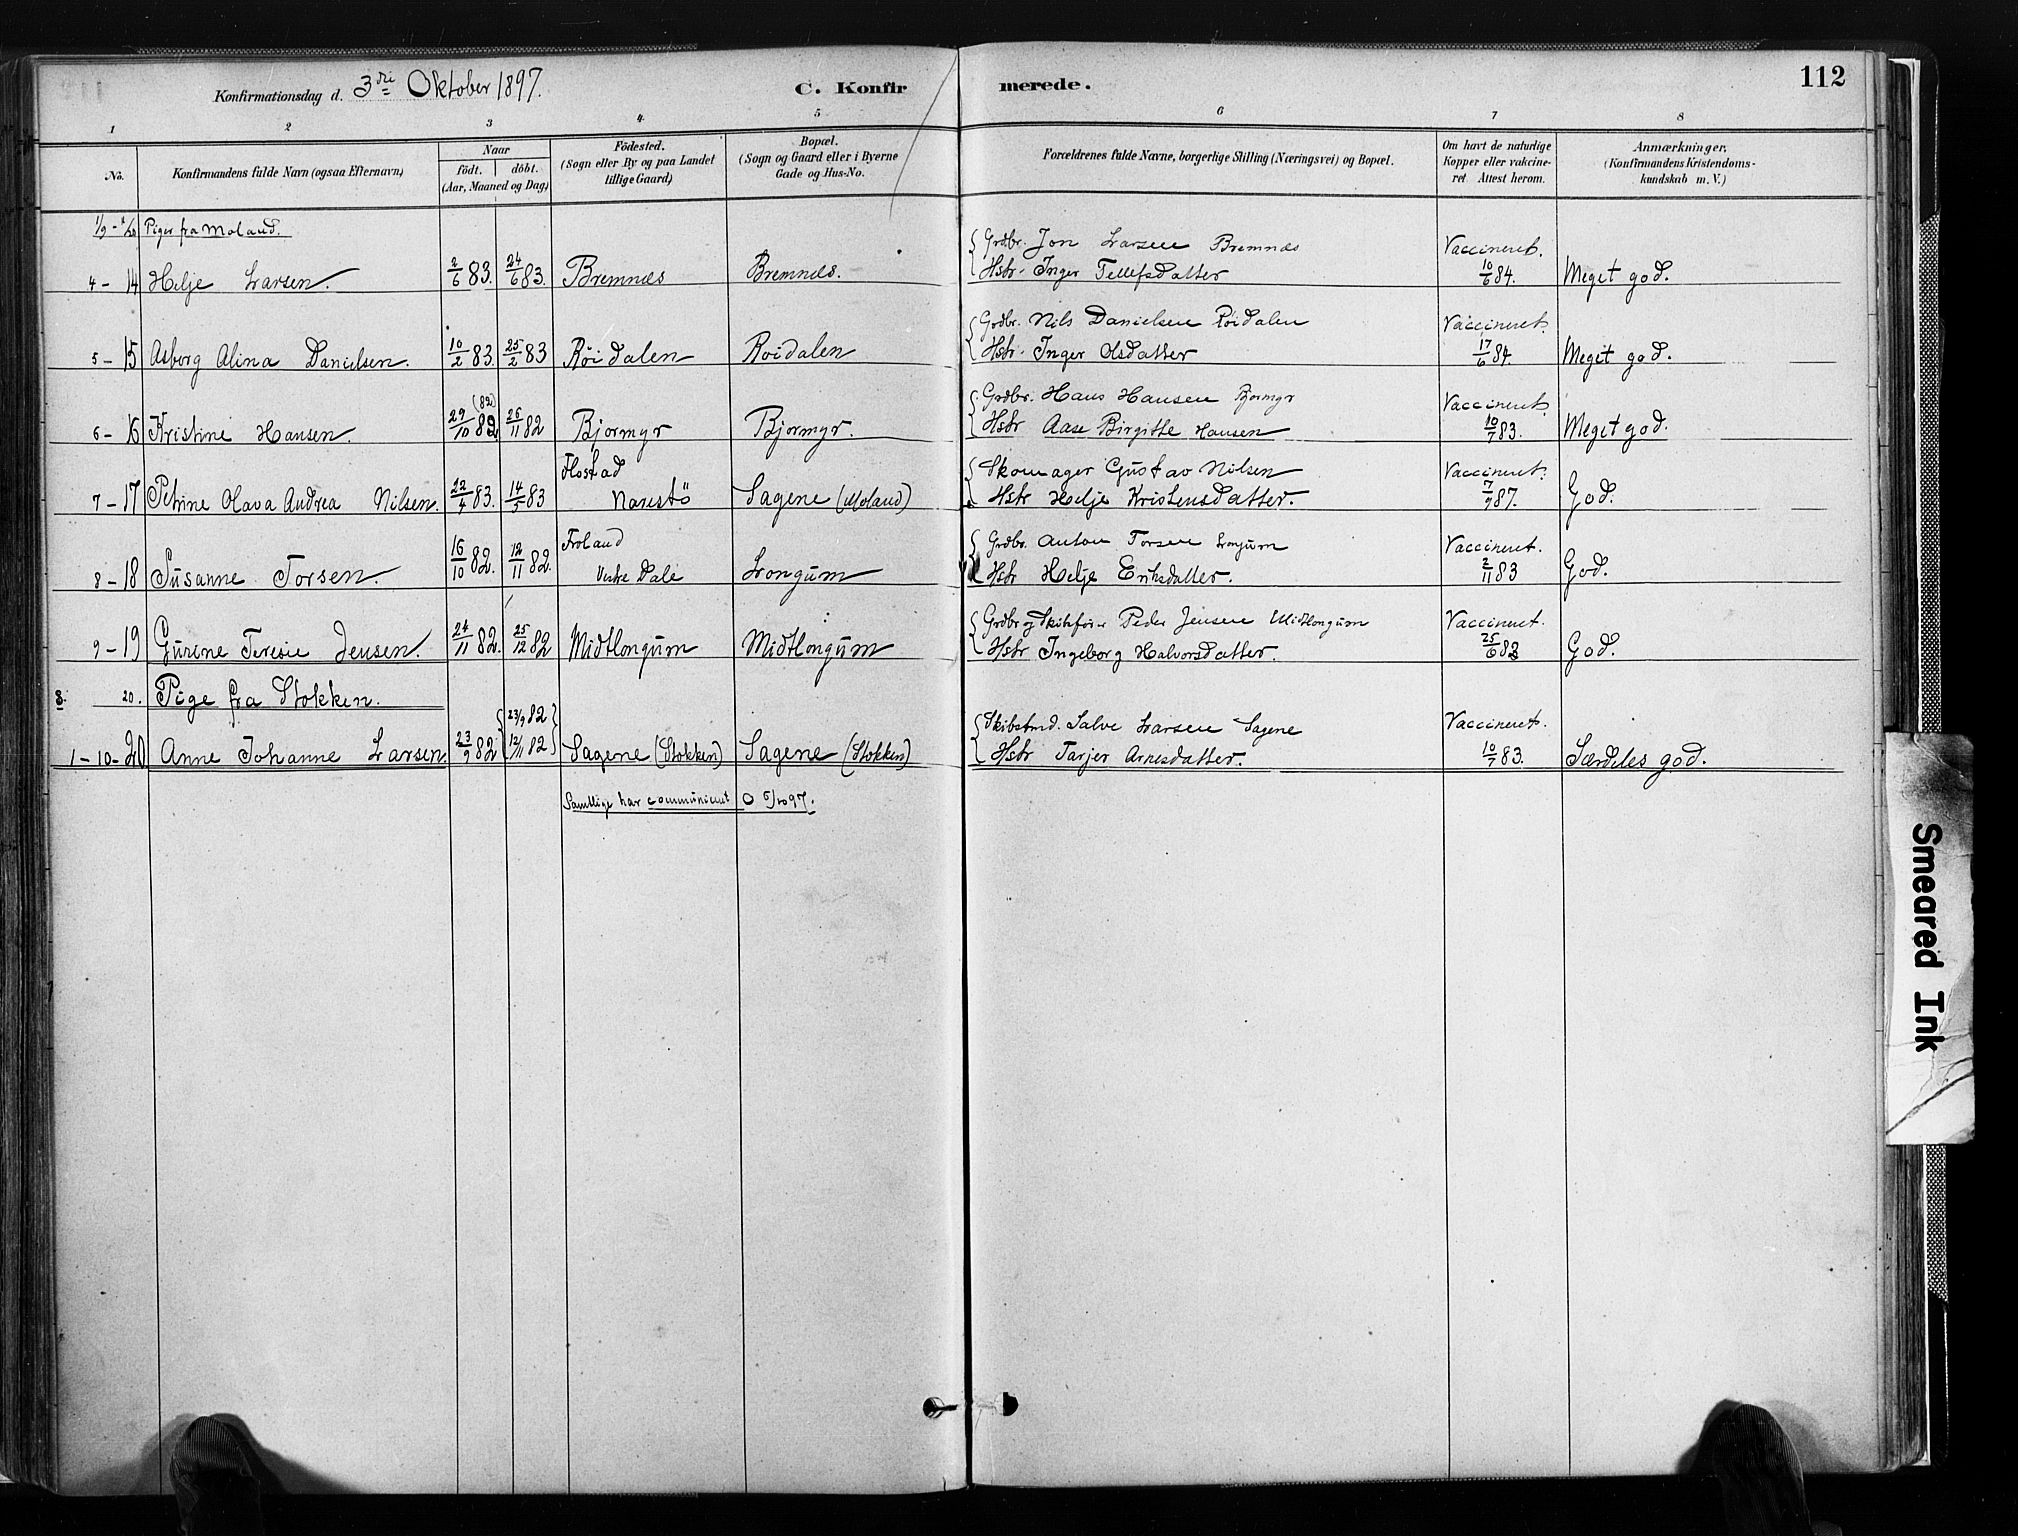 Konfirmationsdag d. 3die Oktober 1897. C. Konfirmerede. 112
1 2 3 4 5 6 7 8
No. Konfirmandens fulde Navn (ogsaa Efternavn) Naar födt. döbt. (Aar, Maaned og Dag) Födested. (Sogn eller By og paa Landet tillige Gaard) Bopæl. (Sogn og Gaard eller i Byerne Gade og Hus-No. Forældrenes fulde Navne, borgerlige Stilling (Næringsvei) og Bopæl. Om havt de naturlige Kopper eller vakcineret. Attest herom. Anmærkninger. (Konfirmandens Kristendomskundskab m. V.)
Piger fra Moland.
Grdbr. Jon Larsen Bremnes Vaccineret.
4 - 14 Helje Larsen. 2/6 83. 24/6 83. Bremnes Bremnes. Hstr. Inger Tellefsdatter 10/6 84. Meget god.
Grdbr. Nils Danielsen Röidalen Vaccineret.
5 - 15 Asborg Alina Danielsen. 10/2 83. 25/2 83 Röidalen Roidalen Hstr. Inger Olsdatter 17/6 84. Meget god.
(82) Grdbr. Hans Hansen Bjormyr Vaccineret.
6 - 16 Kristine Hansen. 29/10 82 26/11 82 Bjormyr Bjormyr. Hstr Aase Birgitte Hansen 10/7 83. Meget god.
Flostad Skomager Gustav Nilsen Vaccineret.
7 - 17 Petrine Olava Andrea Nilsen. 22/4 83. 14/5 83 Narestö Sagene (Moland) Hstr Helje Kristensdatter. 7/9 87. God.
Froland Grdbr. Anton Torsen Longum Vaccineret.
8 - 18 Susanne Torsen. 16/10 82. 12/11 82. Dale Longum Hstr Helje Eriksdatter. 2/11 83 God.
Grdbr og Skibsfører Peder Jensen Midtlongum Vaccineret.
9 - 19 Gurine Teresie Jensen. 24/11 82. 25/12 82 Midtlongum Midtlongum Hstr Ingeborg Halvorsdatter. 25/6 83 God.
S. 20. Pige fra Stokken.
23/9 82 Skibstmd. Salve Larsen Sagene Vaccineret.
1 - 10 - 20 Anne Johanne Larsen. 23/9 82 12/11 82 Sagene (Stokken) Sagene (Stokken) Hstr Tarjer Arnesdatter. 10/7 83. Særdeles god.
Samtlige har communiceret 5/10 97.
Smeared Ink